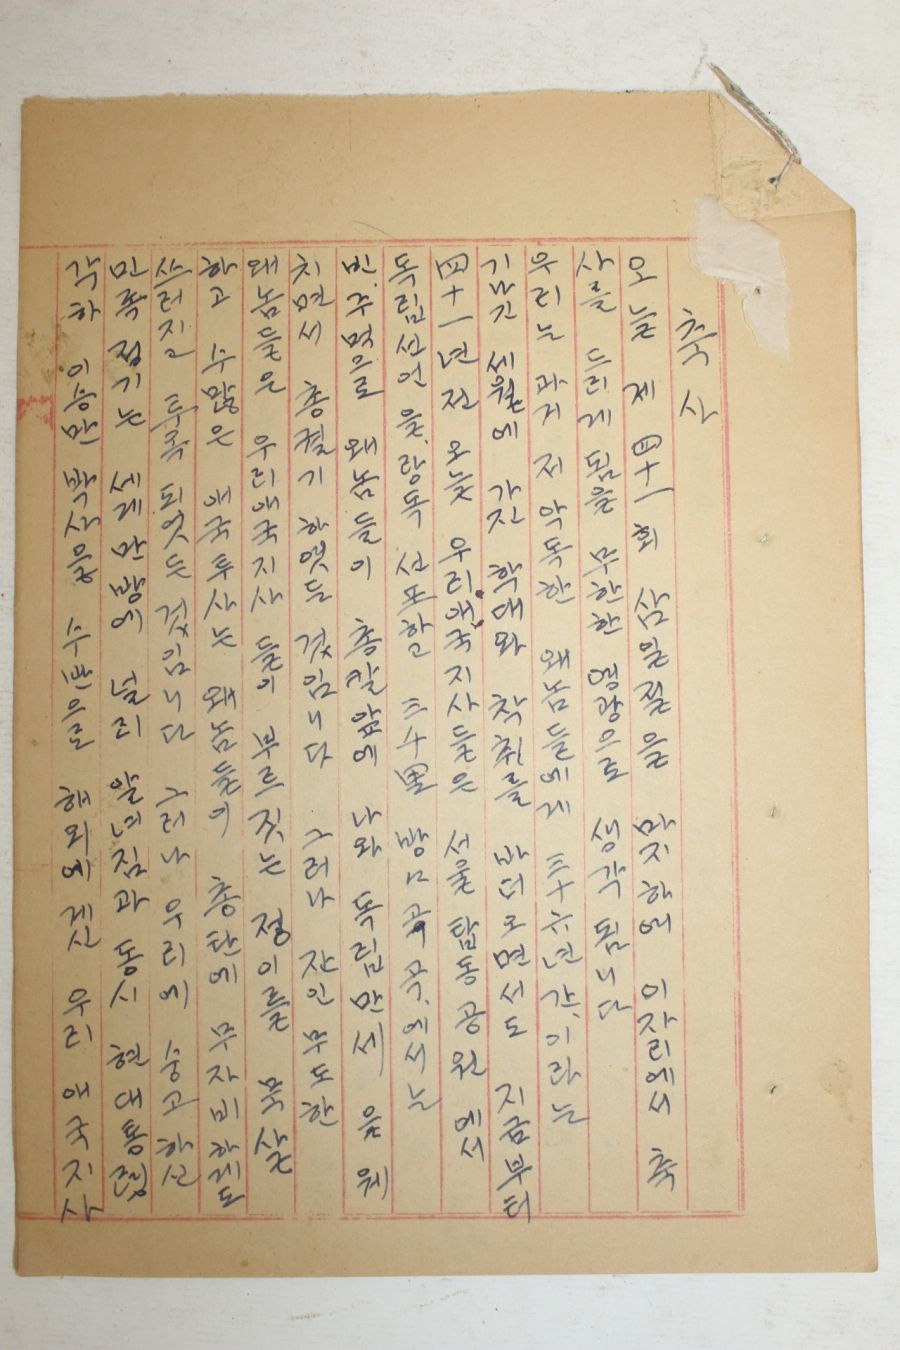 축사
오늘 제 四十一회 삼일절을 마지하여 이자리에서 축
사를 드리게됨을 무한한 영광으로 생각 됨니다
우리는 과거 저 악독한 왜놈들에게 三十六년간.이라는
긴긴 세월에 가진 학대와 착취를 바더오면서도 지금부터
四十一년전 오늘 우리애국지사들은 서울 탑동공원에서
독립선언을.랑독 선포하고 三千里 방방곡곡.에서는
빈.주먹으로 왜놈들이 총칼앞에 나와 독립만세를 웨
치면서 총궐기 하엿든 것임니다 그러나 잔인무도한
왜놈들은 우리애국지사 들이 부르짓는 정이를 묵살
하고 수많은 애국투사는 왜놈들이 총탄에 무자비하게도
쓰러지고 투옥 되엿든 것임니다 그러나 우리에 숭고하신
민족정기는 세계만방에 널리 알녀짐과 동시 현대통령
각하 이승만 박사를 수반으로 해외에 게신 우리 애국지사